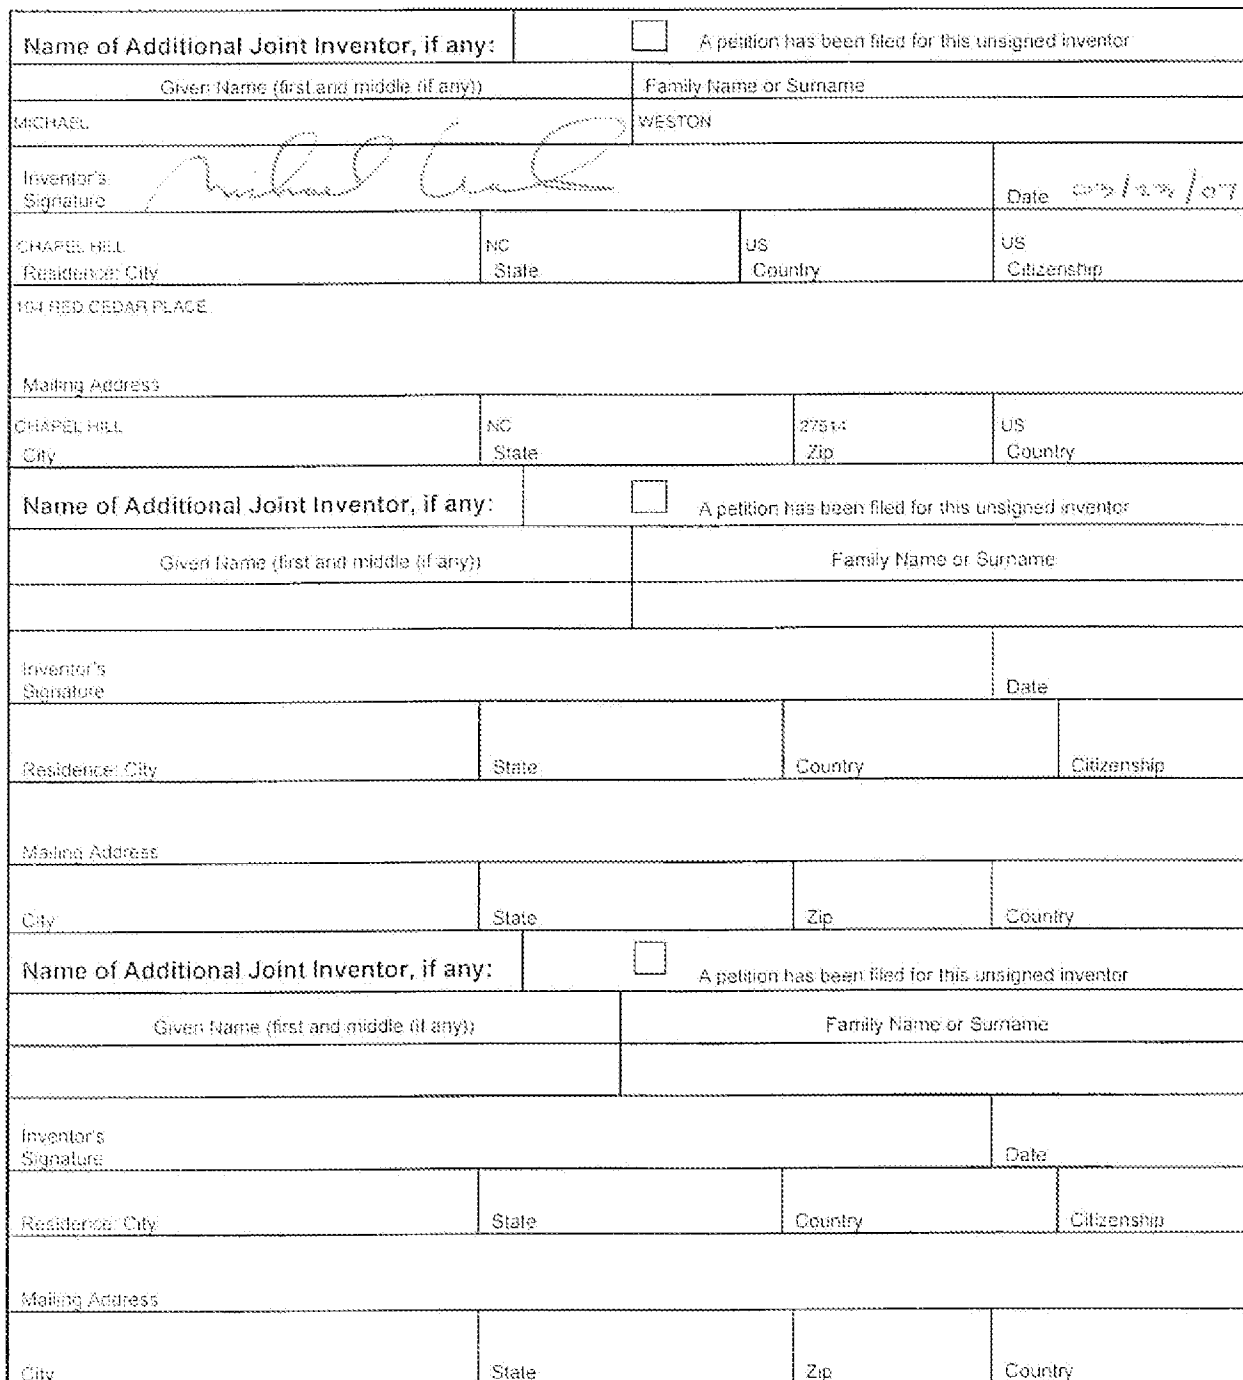 Name of Additional Joint Inventor, if any: A petition has been filed for this unsigned inventor
Given Name (first and middle (if any)) Family Name or Surname
MICHAEL WESTON
Inventor's
Signature Date
CHAPEL HILL NC US US
Residence: City State Country Citizenship
104 RED CEDAR PLACE
Mailing Address
CHAPEL HILL NC 27514 US
City State Zip Country
Name of Additional Joint Inventor, if any: A petition has been filed for this unsigned inventor
Given Name (first and middle (if any)) Family Name or Surname
Inventor's
Signature Date
Residence: City State Country Citizenship
Mailing Address
City State Zip Country
Name of Additional Joint Inventor, if any: A petition has been filed for this unsigned inventor
Given Name (first and middle (if any)) Family Name or Surname
Inventor's
Signature Date
Residence: City State Country Citizenship
Mailing Address
City State Zip Country